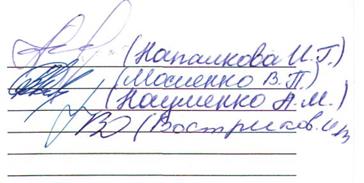 (Напалкова И.Г.)
(Мосиенко В.П.)
(Науменко А.М.)
(Востриков И.В.